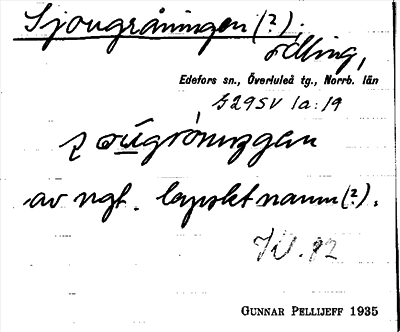 Sjougråningen (?);
odling,
Edefors sn., Överluleå tg., Norrb. län
G29SV 1a:19
av ngt. lapskt namn (?).
GUNNAR PELLIJEFF 1935